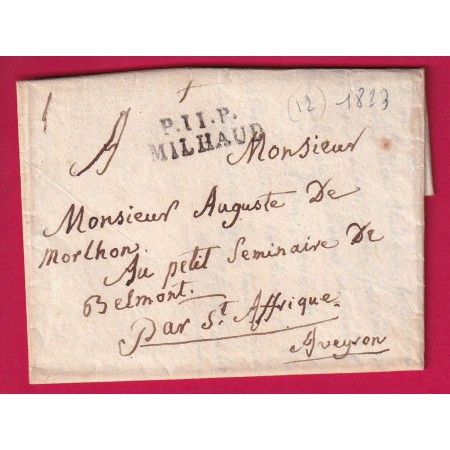 (12) 1823
P.11.P.
MILHAUD
A Monsieur
Monsieur Auguste De
Morlhon.
Au petit Seminaire De
Belmont.
Par St. Affrique.
Aveyron